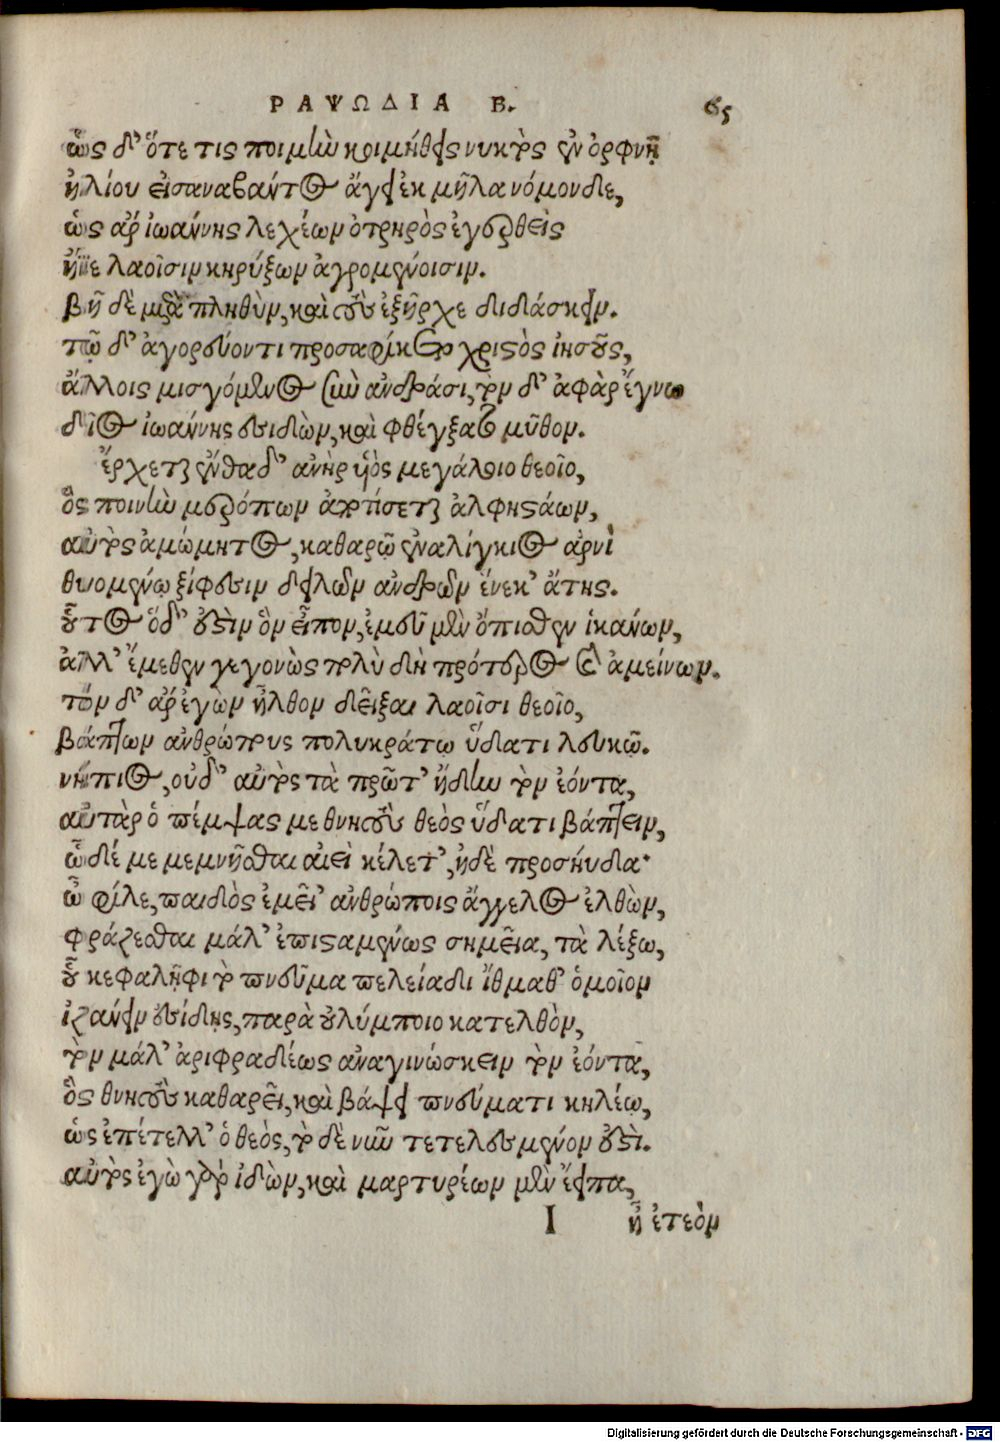 ΡΑΨΩΔΙΑ Β. 65
ὣς δ' ὅτε τις ποιμὴν κοιμήθεις νυκτὸς ἐν ὀρφνῇ
ἠλίου εἰσαναβάντος ἄγει ἐκ μῆλα νόμονδε,
ὣς ἄρ' ἰωάννης λεχέων ὀτρηρὸς ἐγερθεὶς
ἤϊε λαοῖσιν κηρύξων ἀγρομένοισιν.
βῆ δὲ μετὰ πληθὺν, καὶ τοὺς ἐξῆρχε διδάσκειν.
τῷ δ' ἀγορεύοντι προσαφίκετο χριστὸς ἰησοῦς,
ἄλλοις μισγόμενος σὺν ἀνδράσι, τὸν δ' ἀφὰρ ἔγνω
δῖος ἰωάννης εὐιδὼν, καὶ φθέγξατο μῦθον.
ἔρχεται ἔνθαδ' ἀνὴρ υἱὸς μεγάλοιο θεοῖο,
ὃς ποινὴν μερόπων ἀποτίσεται ἀλφηστάων,
αὐτὸς ἀμώμητος, καθαρῷ ἐναλίγκιος ἀρνὶ
θυομένῳ ξίφεσιν δειλῶν ἀνδρῶν ἕνεκ' ἄτης.
οὗτος ὅδ' οὐστὶν ὃν εἶπον, ἐμεῦ μὲν ὄπισθεν ἱκάνων,
ἀλλ' ἔμεθεν γεγονὼς πολὺ δὴ πρότερος καὶ ἀμείνων.
τόν δ' ἄρ' ἐγὼν ἦλθον δεῖξαι λαοῖσι θεοῖο,
βάπτων ἀνθρώπους πολυκράτῳ ὕδατι λευκῷ.
νήπιος, οὐδ' αὐτὸς τὰ πρῶτ' ἤδην τὸν ἐόντα,
αὐτὰρ ὁ πέμψας με θνητοὺς θεὸς ὕδατι βάπτειν,
ὧδέ με μεμνῆσθαι αἰεὶ κέλετ', ἠδὲ προσηύδα·
ὦ φίλε, παιδὸς ἐμεῖ' ἀνθρώποις ἄγγελος ἐλθὼν,
φράζεσθαι μάλ' ἐπισταμένως σημεῖα, τὰ λέξω,
οὗ κεφαλῆφι τὸ πνεῦμα πελείαδι ἴθμαθ' ὁμοῖον
ἱζάνειν ἐσίδῃς, παρὰ οὐλύμποιο κατελθὸν,
τὸν μάλ' ἀριφραδέως ἀναγινώσκειν τὸν ἐόντα,
ὃς θνητοὺς καθαρεῖ, καὶ βάψει πνεύματι κηλέῳ,
ὣς ἐπέτελλ' ὁ θεὸς, τὸ δὲ νῦν τετελεσμένον ἐστί.
αὐτὸς ἐγὼ γὰρ ἰδὼν, καὶ μαρτυρέων μὲν ἔειπα,
I ἦ ἐτεὸν
Digitalisierung gefördert durch die Deutsche Forschungsgemeinschaft - DFG